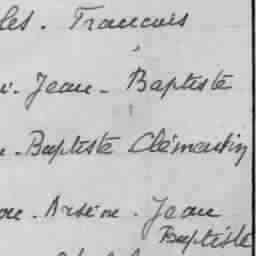 les. Francois
. Jean - Baptiste
. Baptiste Clémentin
. Arsène. Jean
Baptiste